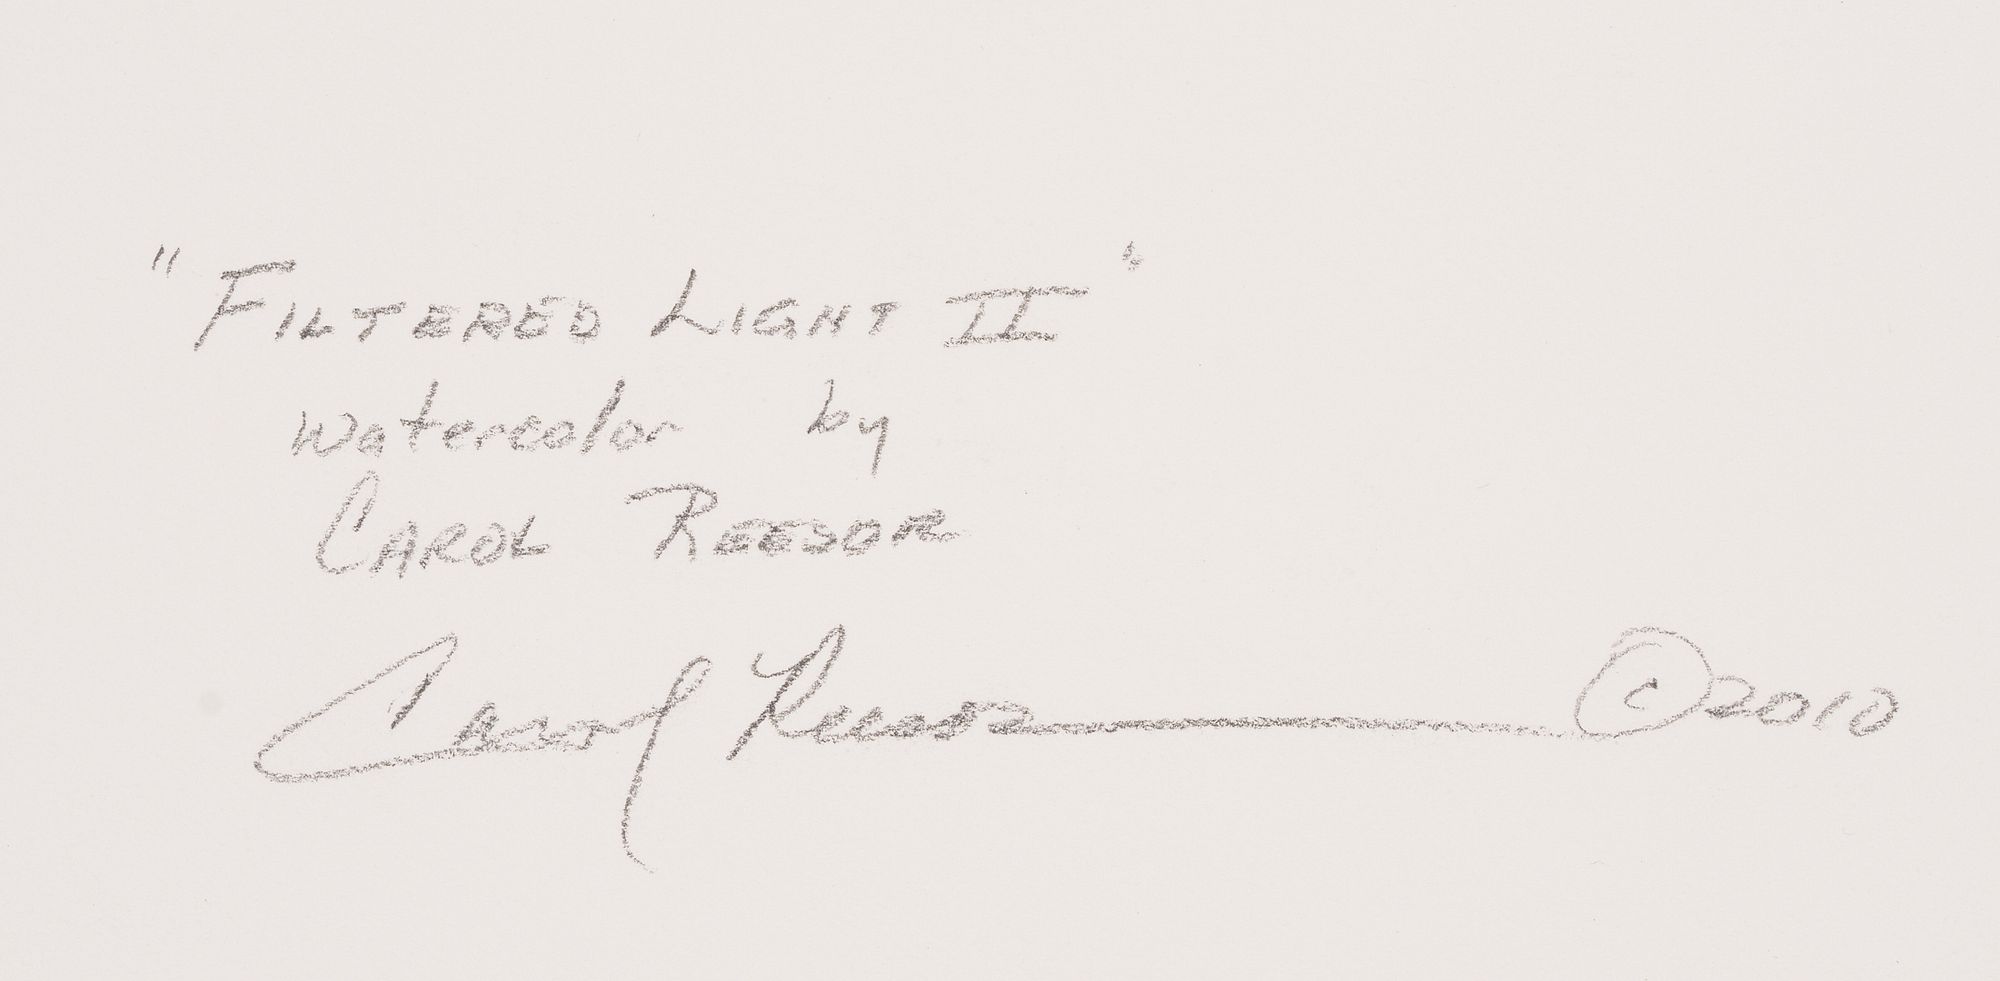 "FILTERED LIGHT II"
watercolor by
CAROL REEDOR
Carol Reedor ©2010